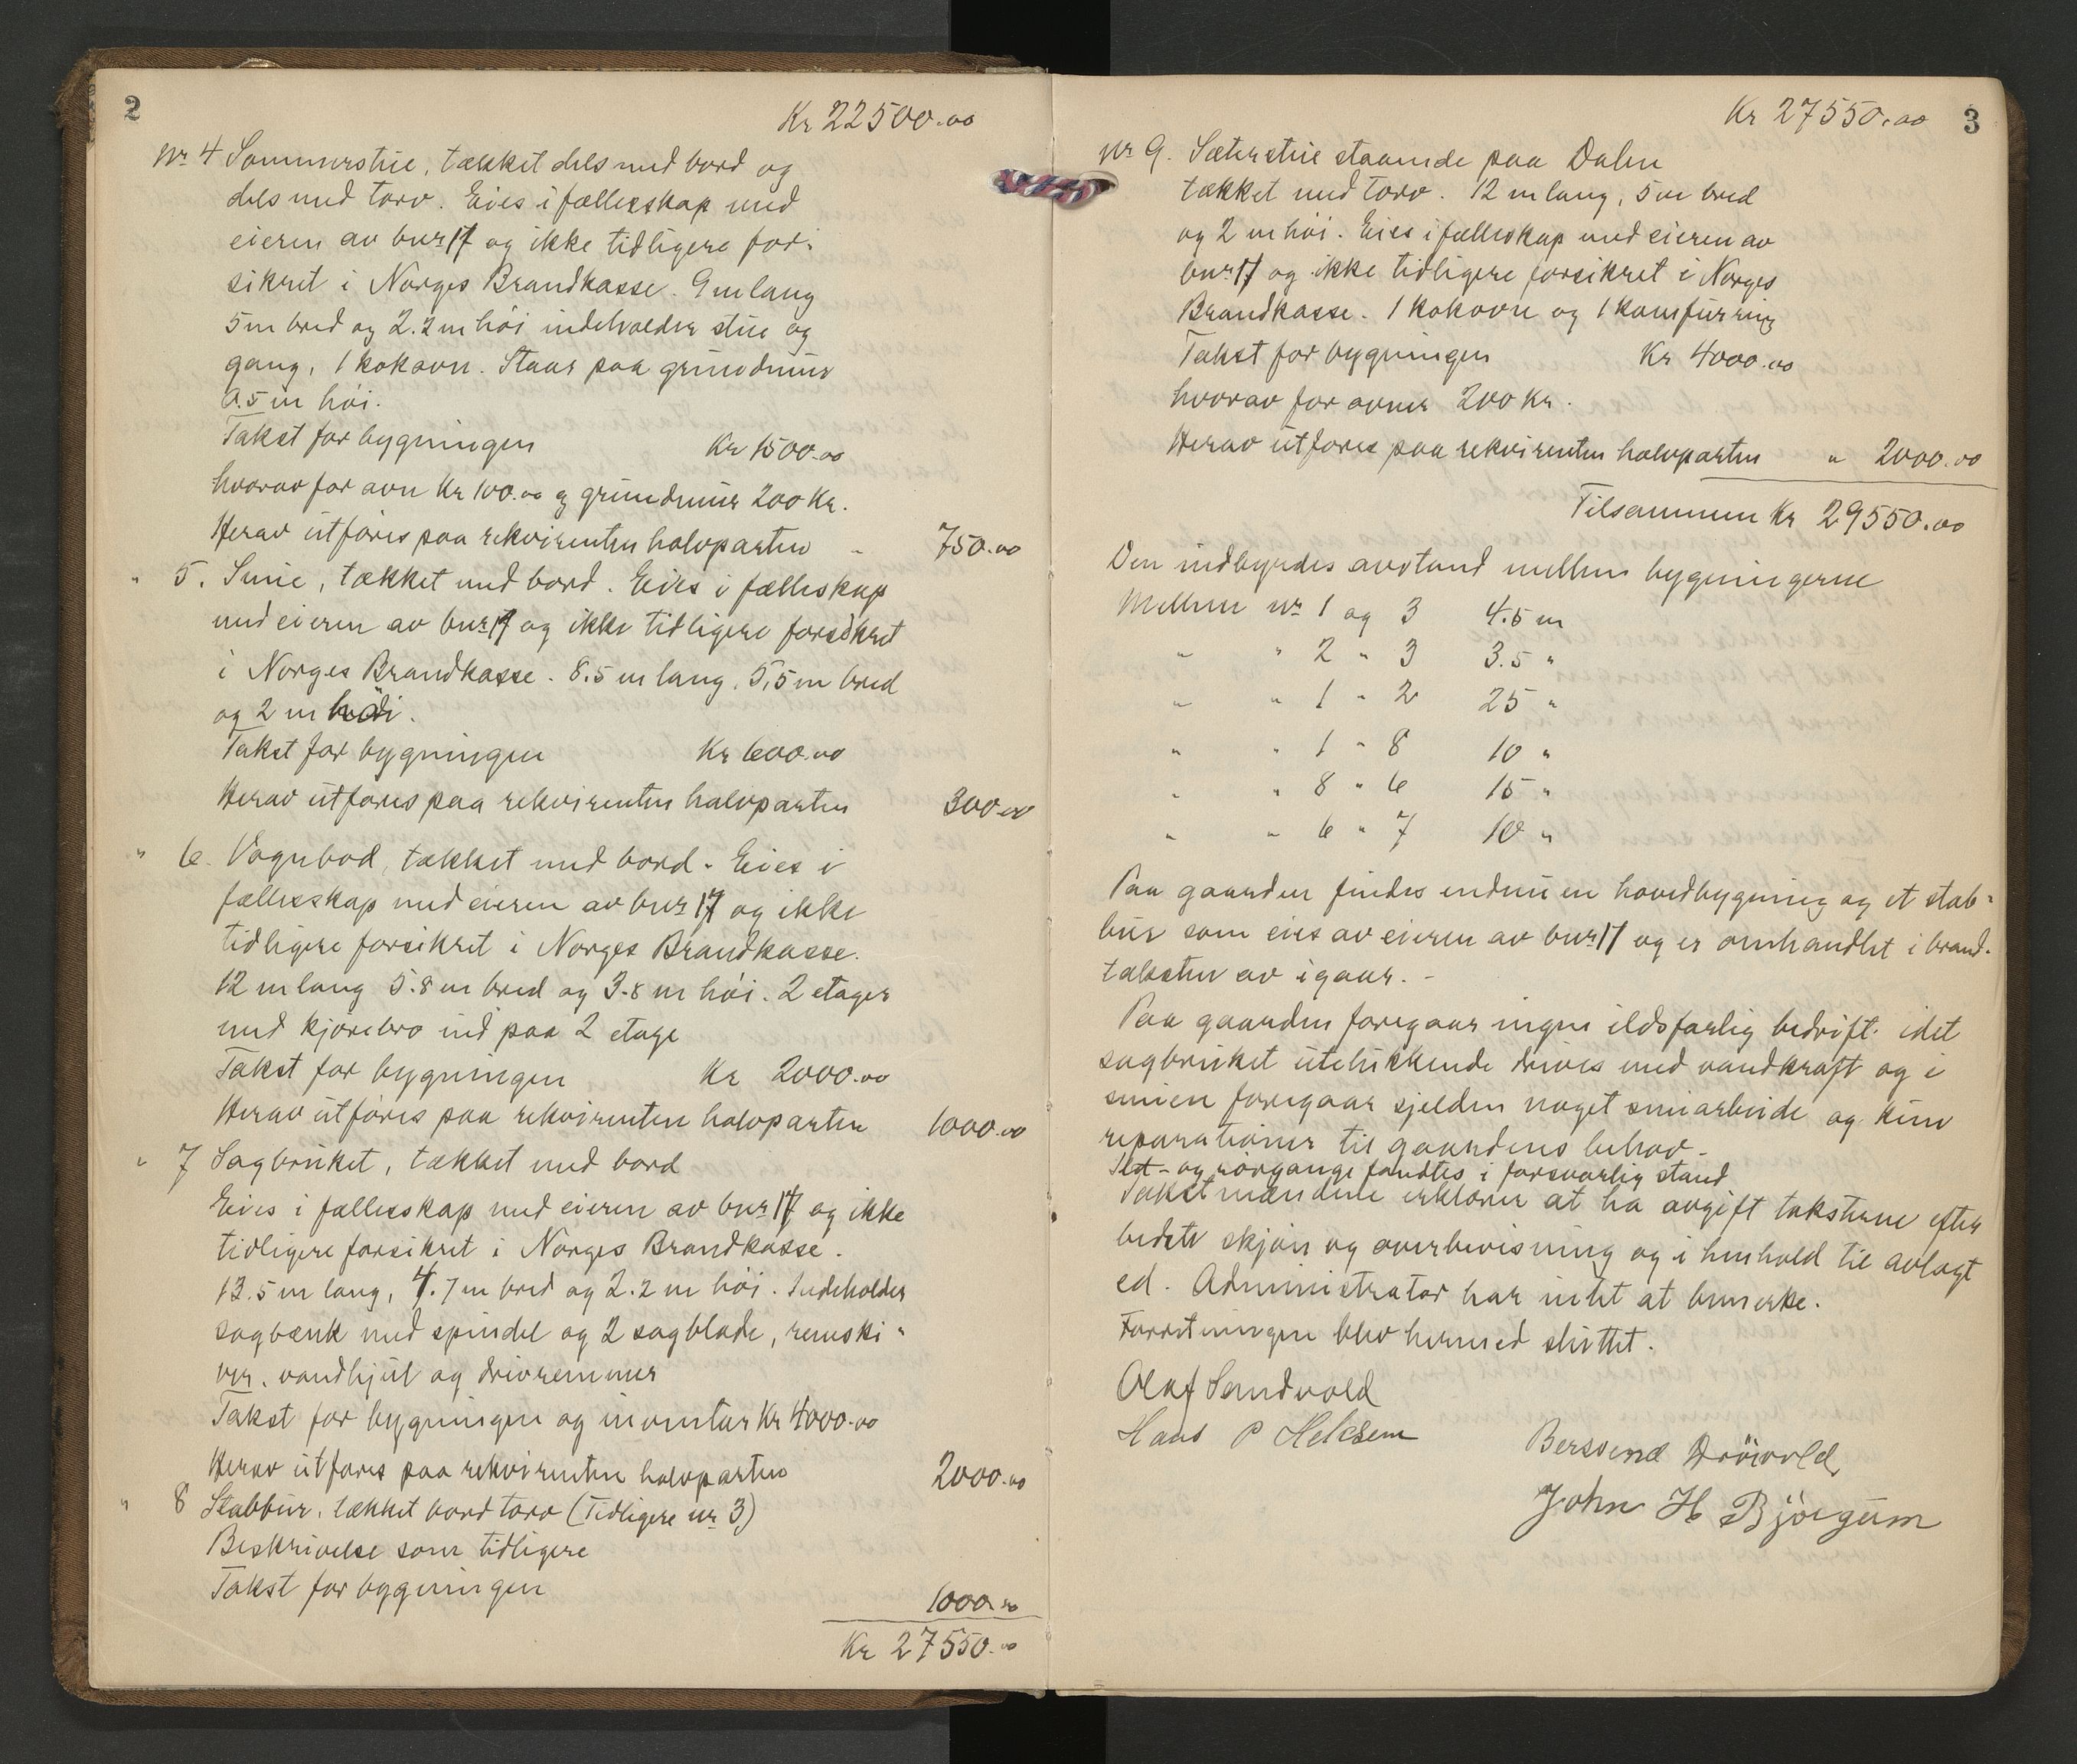 2
Kr 22500.00
Nr 4 Sommerstue, tækket dels med bord og
dels med torv. Eies i fællesskap med
eieren av bnr 17 og ikke tidligere for-
sikret i Norges Brandkasse. 9 m lang
5 m bred og 2.2 m høi indeholder stue og
gang, 1 kokovn. Staar paa grundmur
0.5 m høi.
Takst for bygningen Kr 1500.00
hvorav for ovn Kr 100.00 og grundmur 200 Kr.
Herav utføres paa rekvirenten halvparten " 750.00
" 5. Smie, tækket med bord. Eies i fælleskap
med eieren av bnr 17 og ikke tidligere forsikret
i Norges Brandkasse. 8.5 m lang, 5,5 m bred
og 2 m høi.
Takst for bygningen Kr 600.00
Herav utføres paa rekvirenten halvparten 300.00
" 6. Vognbod, tækket med bord. Eies i
fællesskap med eieren av bnr 17 og ikke
tidligere forsikret i Norges Brandkasse.
12 m lang 5.8 m bred og 3.8 m høi. 2 etager
med kjørebro ind paa 2 etage
Takst for bygningen Kr 2000.00
Herav utføres paa rekvirenten halvparten 1000.00
" 7 Sagbruket, tækket med bord
Eies i fællesskap med eieren av bnr 17 og ikke
tidligere forsikret i Norges Brandkasse.
13.5 m lang, 4.7 m bred og 2.2 m høi. Indeholder
sagbænk med spindel og 2 sagblade, remski-
ver, vandhjul og drivremmer
Takst for bygningen og inventar Kr 4000.00
Herav utføres paa rekvirenten halvparten 2000.00
" 8 Stabbur, tækket bord torv (Tidligere nr 3)
Beskrivelse som tidligere
Takst for bygningen
1000.00
Kr 27550.00
Kr 27550.00 3
Nr 9. Sæterstue staaende paa Dalen
tækket med torv. 12 m lang, 5 m bred
og 2 m høi. Eies i fælleskap med eieren av
bnr 17 og ikke tidligere forsikret i Norges
Brandkasse. 1 kokovn og 1 komfurring
Takst for bygningen Kr 4000.00
hvorav for ovner 200 Kr.
Herav utføres paa rekvirenten halvparten " 2000.00
Tilsammen Kr 29550.00
Den indbyrdes avstand mellem bygningerne
Mellem nr 1 og 3 4.5 m
" " 2 " 3 3.5 "
" " 1 " 2 25 "
" " 1 " 8 10 "
" " 8 " 6 15 "
" " 6 " 7 10 "
Paa gaarden findes endnu en hovedbygning og et stab-
bur som eies av eieren av bnr 17 og er omhandlet i brand-
taksten av igaar. -
Paa gaarden foregaar ingen ildsfarlig bedrift idet
sagbruket utelukkende drives med vandkraft og i
smien foregaar sjelden noget smiarbeide og kun
reparationer til gaardens behov -
Ild- og rørgange fandtes i forsvarlig stand
Takstmændene erklærer at ha avgit taksterne efter
bedste skjøn og overbevisning og i henhold til avlagt
ed. Administrator har intet at bemerke.
Forretningen blev hermed sluttet.
Olaf Sandvold
Hans P
Berssend Drøivold,
John H Bjørgum